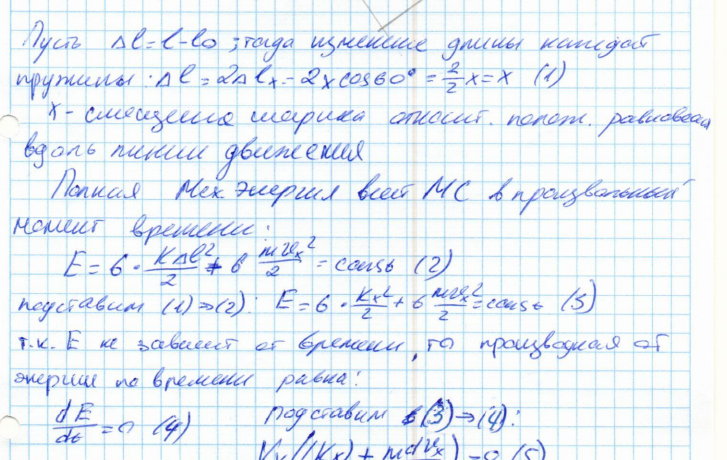 Пусть Δl = l - l₀; тогда изменение длины каждой
пружины: Δl = 2Δlₓ = 2x cos60° = 2/2 x = x (1)
x - смещение шарика относит. полож. равновесия
вдоль линии движения
Полная Мех Энергия всей МС в произвольный
момент времени:
E = 6 · KΔl²/2 + 6 mvₓ²/2 = const (2)
подставим (1) => (2): E = 6 · Kx²/2 + 6 mvₓ²/2 = const (3)
т.к. E не зависит от времени, то производная от
энергии по времени равна:
dE/dt = 0 (4) подставим (3) => (4):
Vₓ((Kx) + m dvₓ) = 0 (5)